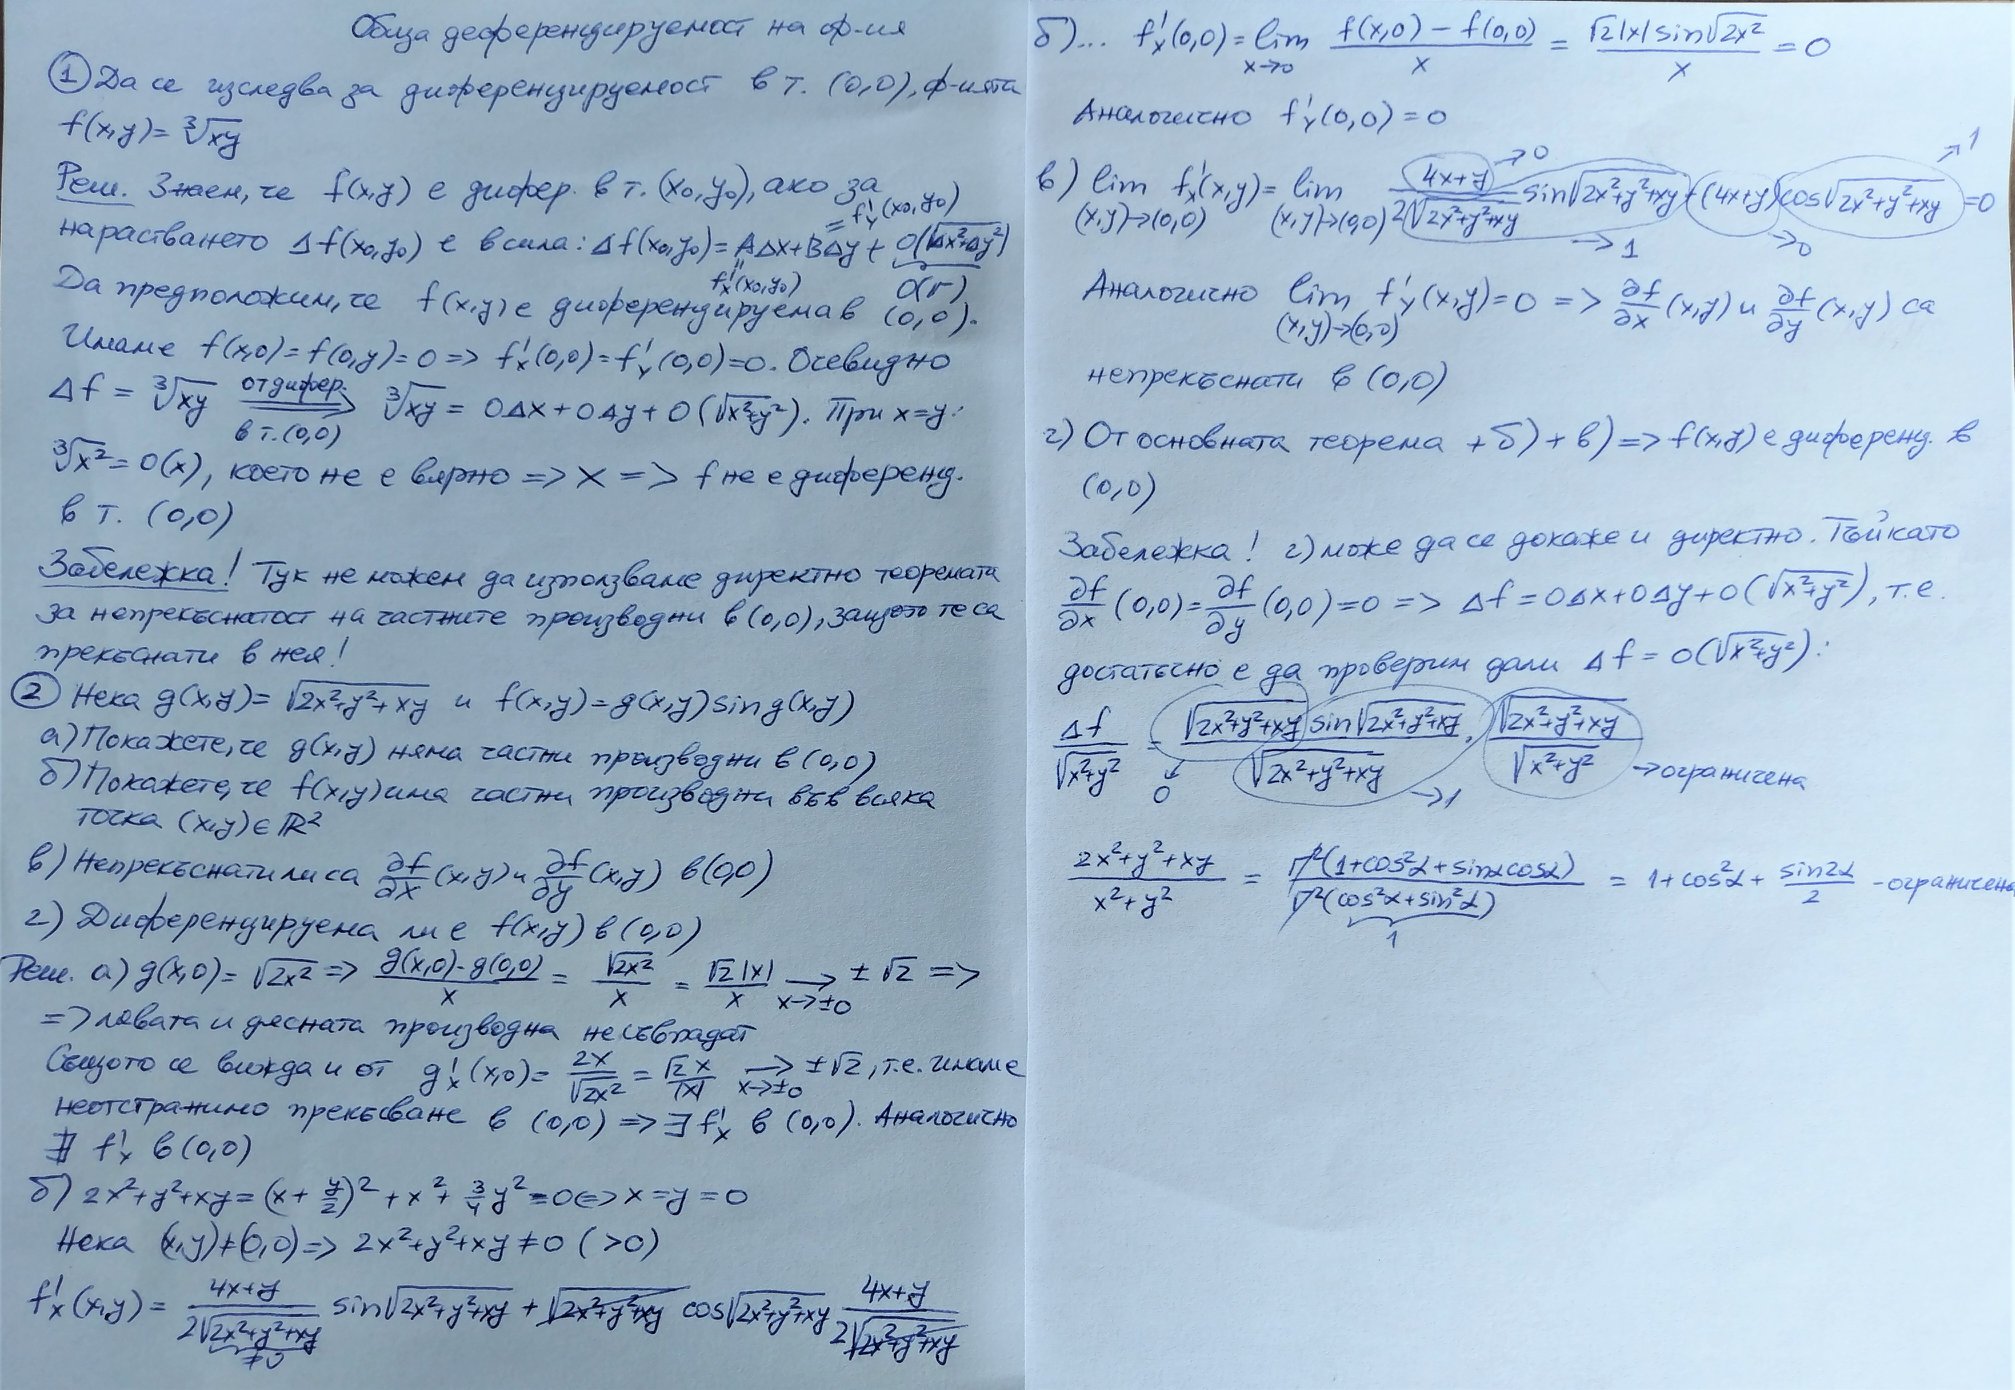 Обща деференцируемост на ф-ия
① Да се изследва за диференцируемост в т. (0,0), ф-ията
f(x,y)=∛xy
Реш. Знаем, че f(x,y) е дифер. в т. (x₀,y₀), ако за
= f'y(x₀,y₀)
нарастването Δf(x₀,y₀) е в сила: Δf(x₀,y₀)=AΔx+BΔy+ o(√Δx²+Δy²)
" f'x(x₀,y₀) o(r)
Да предположим, че f(x,y) е диференцируема в (0,0).
Имаме f(x,0)=f(0,y)=0 => f'x(0,0)=f'y(0,0)=0. Очевидно
Δf = ∛xy от дифер. в т.(0,0) => ∛xy = 0Δx+0Δy+o(√x²+y²). При x=y:
∛x²=o(x), което не е вярно => X => f не е диференц.
в т. (0,0)
Забележка! Тук не можем да използваме директно теоремата
за непрекъснатост на частните производни в (0,0), защото те са
прекъснати в нея!
② Нека g(x,y)= √2x²+y²+xy и f(x,y)=g(x,y)sin g(x,y)
а) Покажете, че g(x,y) няма частни производни в (0,0)
б) Покажете, че f(x,y) има частни производни във всяка
точка (x,y)∈ℝ²
в) Непрекъснати ли са ∂f/∂x (x,y) и ∂f/∂y (x,y) в (0,0)
г) Диференцируема ли е f(x,y) в (0,0)
Реш. а) g(x,0)= √2x² => (g(x,0)-g(0,0))/x = √2x²/x = √2|x|/x → x→±0 ±√2 =>
=> лявата и дясната производна не съвпадат
Същото се вижда и от g'x(x,0)= 2x/√2x² = √2x/|x| → x→±0 ±√2, т.е. имаме
неотстранимо прекъсване в (0,0) => ∃ f'x в (0,0). Аналогично
∄ f'y в (0,0)
б) 2x²+y²+xy=(x+y/2)²+x²+3/4 y²=0 <=> x=y=0
Нека (x,y)≠(0,0)=> 2x²+y²+xy≠0 (>0)
f'x(x,y)= (4x+y)/(2√2x²+y²+xy) sin√2x²+y²+xy + √2x²+y²+xy cos√2x²+y²+xy (4x+y)/(2√2x²+y²+xy)
≠0
б)... f'x(0,0)= lim x→0 (f(x,0)-f(0,0))/x = √2|x|sin√2x²/x = 0
Аналогично f'y(0,0)=0
→0 →1
в) lim (x,y)→(0,0) f'x(x,y)= lim (x,y)→(0,0) (4x+y)/(2√2x²+y²+xy) sin√2x²+y²+xy+(4x+y)cos√2x²+y²+xy =0
→1 →0
Аналогично lim (x,y)→(0,0) f'y(x,y)=0 => ∂f/∂x (x,y) и ∂f/∂y (x,y) са
непрекъснати в (0,0)
г) От основната теорема +б)+в)=> f(x,y) е диференц. в
(0,0)
Забележка! г) може да се докаже и директно. Тъй като
∂f/∂x (0,0)=∂f/∂y (0,0)=0 => Δf=0Δx+0Δy+o(√x²+y²), т.е.
достатъчно е да проверим дали Δf=o(√x²+y²):
Δf/√x²+y² = √2x²+y²+xy sin√2x²+y²+xy/√2x²+y²+xy · √2x²+y²+xy/√x²+y² → ограничена
0 →1
(2x²+y²+xy)/(x²+y²) = r²(1+cos²α+sinαcosα)/r²(cos²α+sin²α) = 1+cos²α+ sin2α/2 - ограничена
1